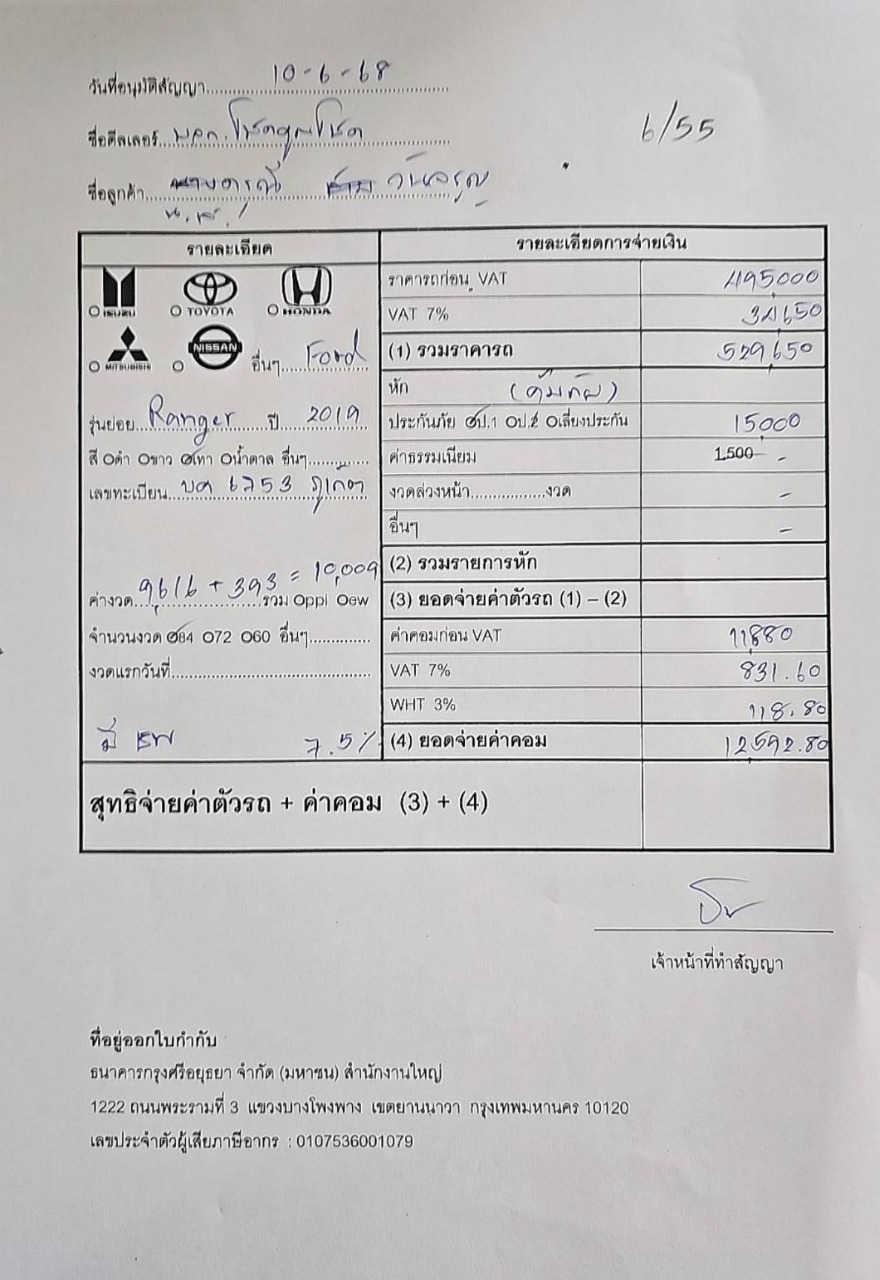 วันที่อนุมัติสัญญา 10-6-68
6/55
ชื่อดีลเลอร์ บจก. โชคคูณโชค
ชื่อลูกค้า นางดารุณี วันจรูญ
น.ส.
รายละเอียด
รายละเอียดการจ่ายเงิน
ISUZU TOYOTA HONDA
MITSUBISHI NISSAN อื่นๆ Ford
รุ่นย่อย Ranger ปี 2019
สี ดำ ขาว เทา น้ำตาล อื่นๆ
เลขทะเบียน บค 6753 ภูเก็ต
ค่างวด 9616 + 393 = 10,009 รวม ppi ew
จำนวนงวด 84 72 60 อื่นๆ
งวดแรกวันที่
มี 7.5%
ราคารถก่อน VAT 495,000
VAT 7% 34,650
(1) รวมราคารถ 529,650
หัก (คุ้มภัย)
ประกันภัย ป.1 ป.2 เสี่ยงประกัน 15,000
ค่าธรรมเนียม 1,500 -
งวดล่วงหน้า งวด -
อื่นๆ -
(2) รวมรายการหัก
(3) ยอดจ่ายค่าตัวรถ (1) – (2)
ค่าคอมก่อน VAT 11,880
VAT 7% 831.60
WHT 3% 118.80
(4) ยอดจ่ายค่าคอม 12,592.80
สุทธิจ่ายค่าตัวรถ + ค่าคอม (3) + (4)
เจ้าหน้าที่ทำสัญญา
ที่อยู่ออกใบกำกับ
ธนาคารกรุงศรีอยุธยา จำกัด (มหาชน) สำนักงานใหญ่
1222 ถนนพระรามที่ 3 แขวงบางโพงพาง เขตยานนาวา กรุงเทพมหานคร 10120
เลขประจำตัวผู้เสียภาษีอากร : 0107536001079